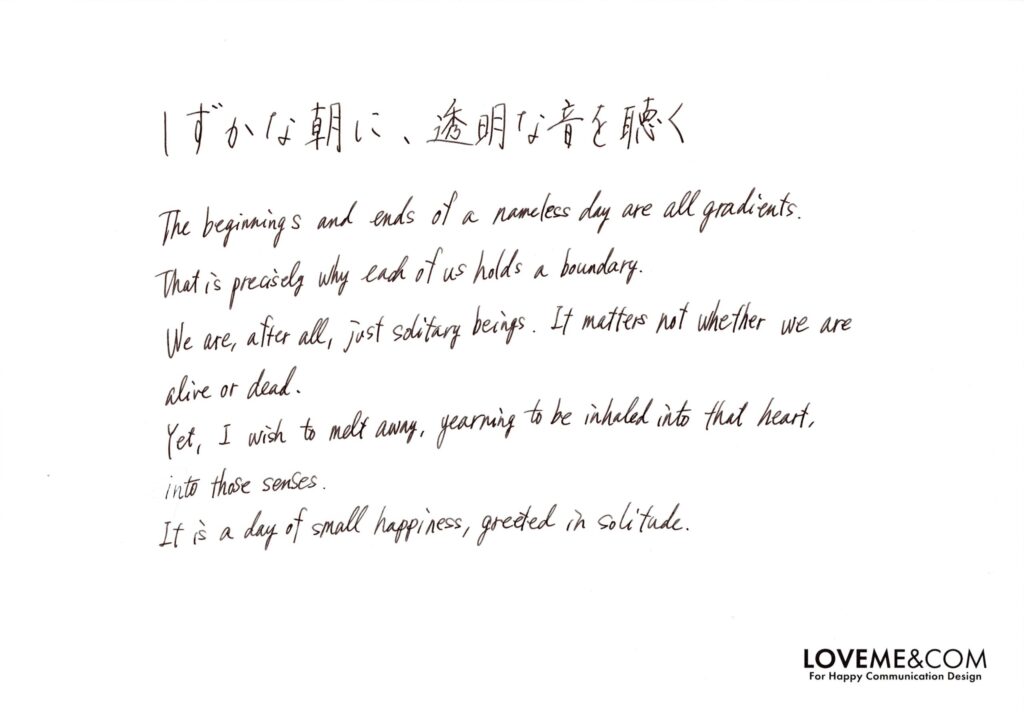 しずかな朝に、透明な音を聴く
The beginnings and ends of a nameless day are all gradients.
That is precisely why each of us holds a boundary.
We are, after all, just solitary beings. It matters not whether we are
alive or dead.
Yet, I wish to melt away, yearning to be inhaled into that heart,
into those senses.
It is a day of small happiness, greeted in solitude.
LOVEME&COM
For Happy Communication Design